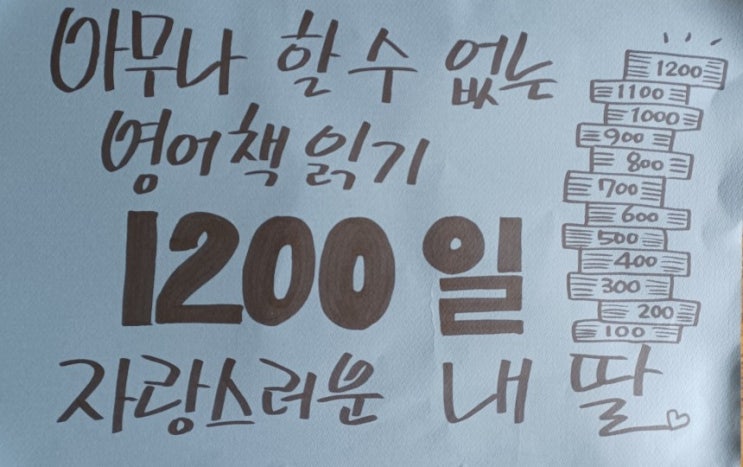 아무나 할 수 없는
영어책 읽기
1200일
자랑스러운 내 딸
1200
1100
1000
900
800
700
600
500
400
300
200
100